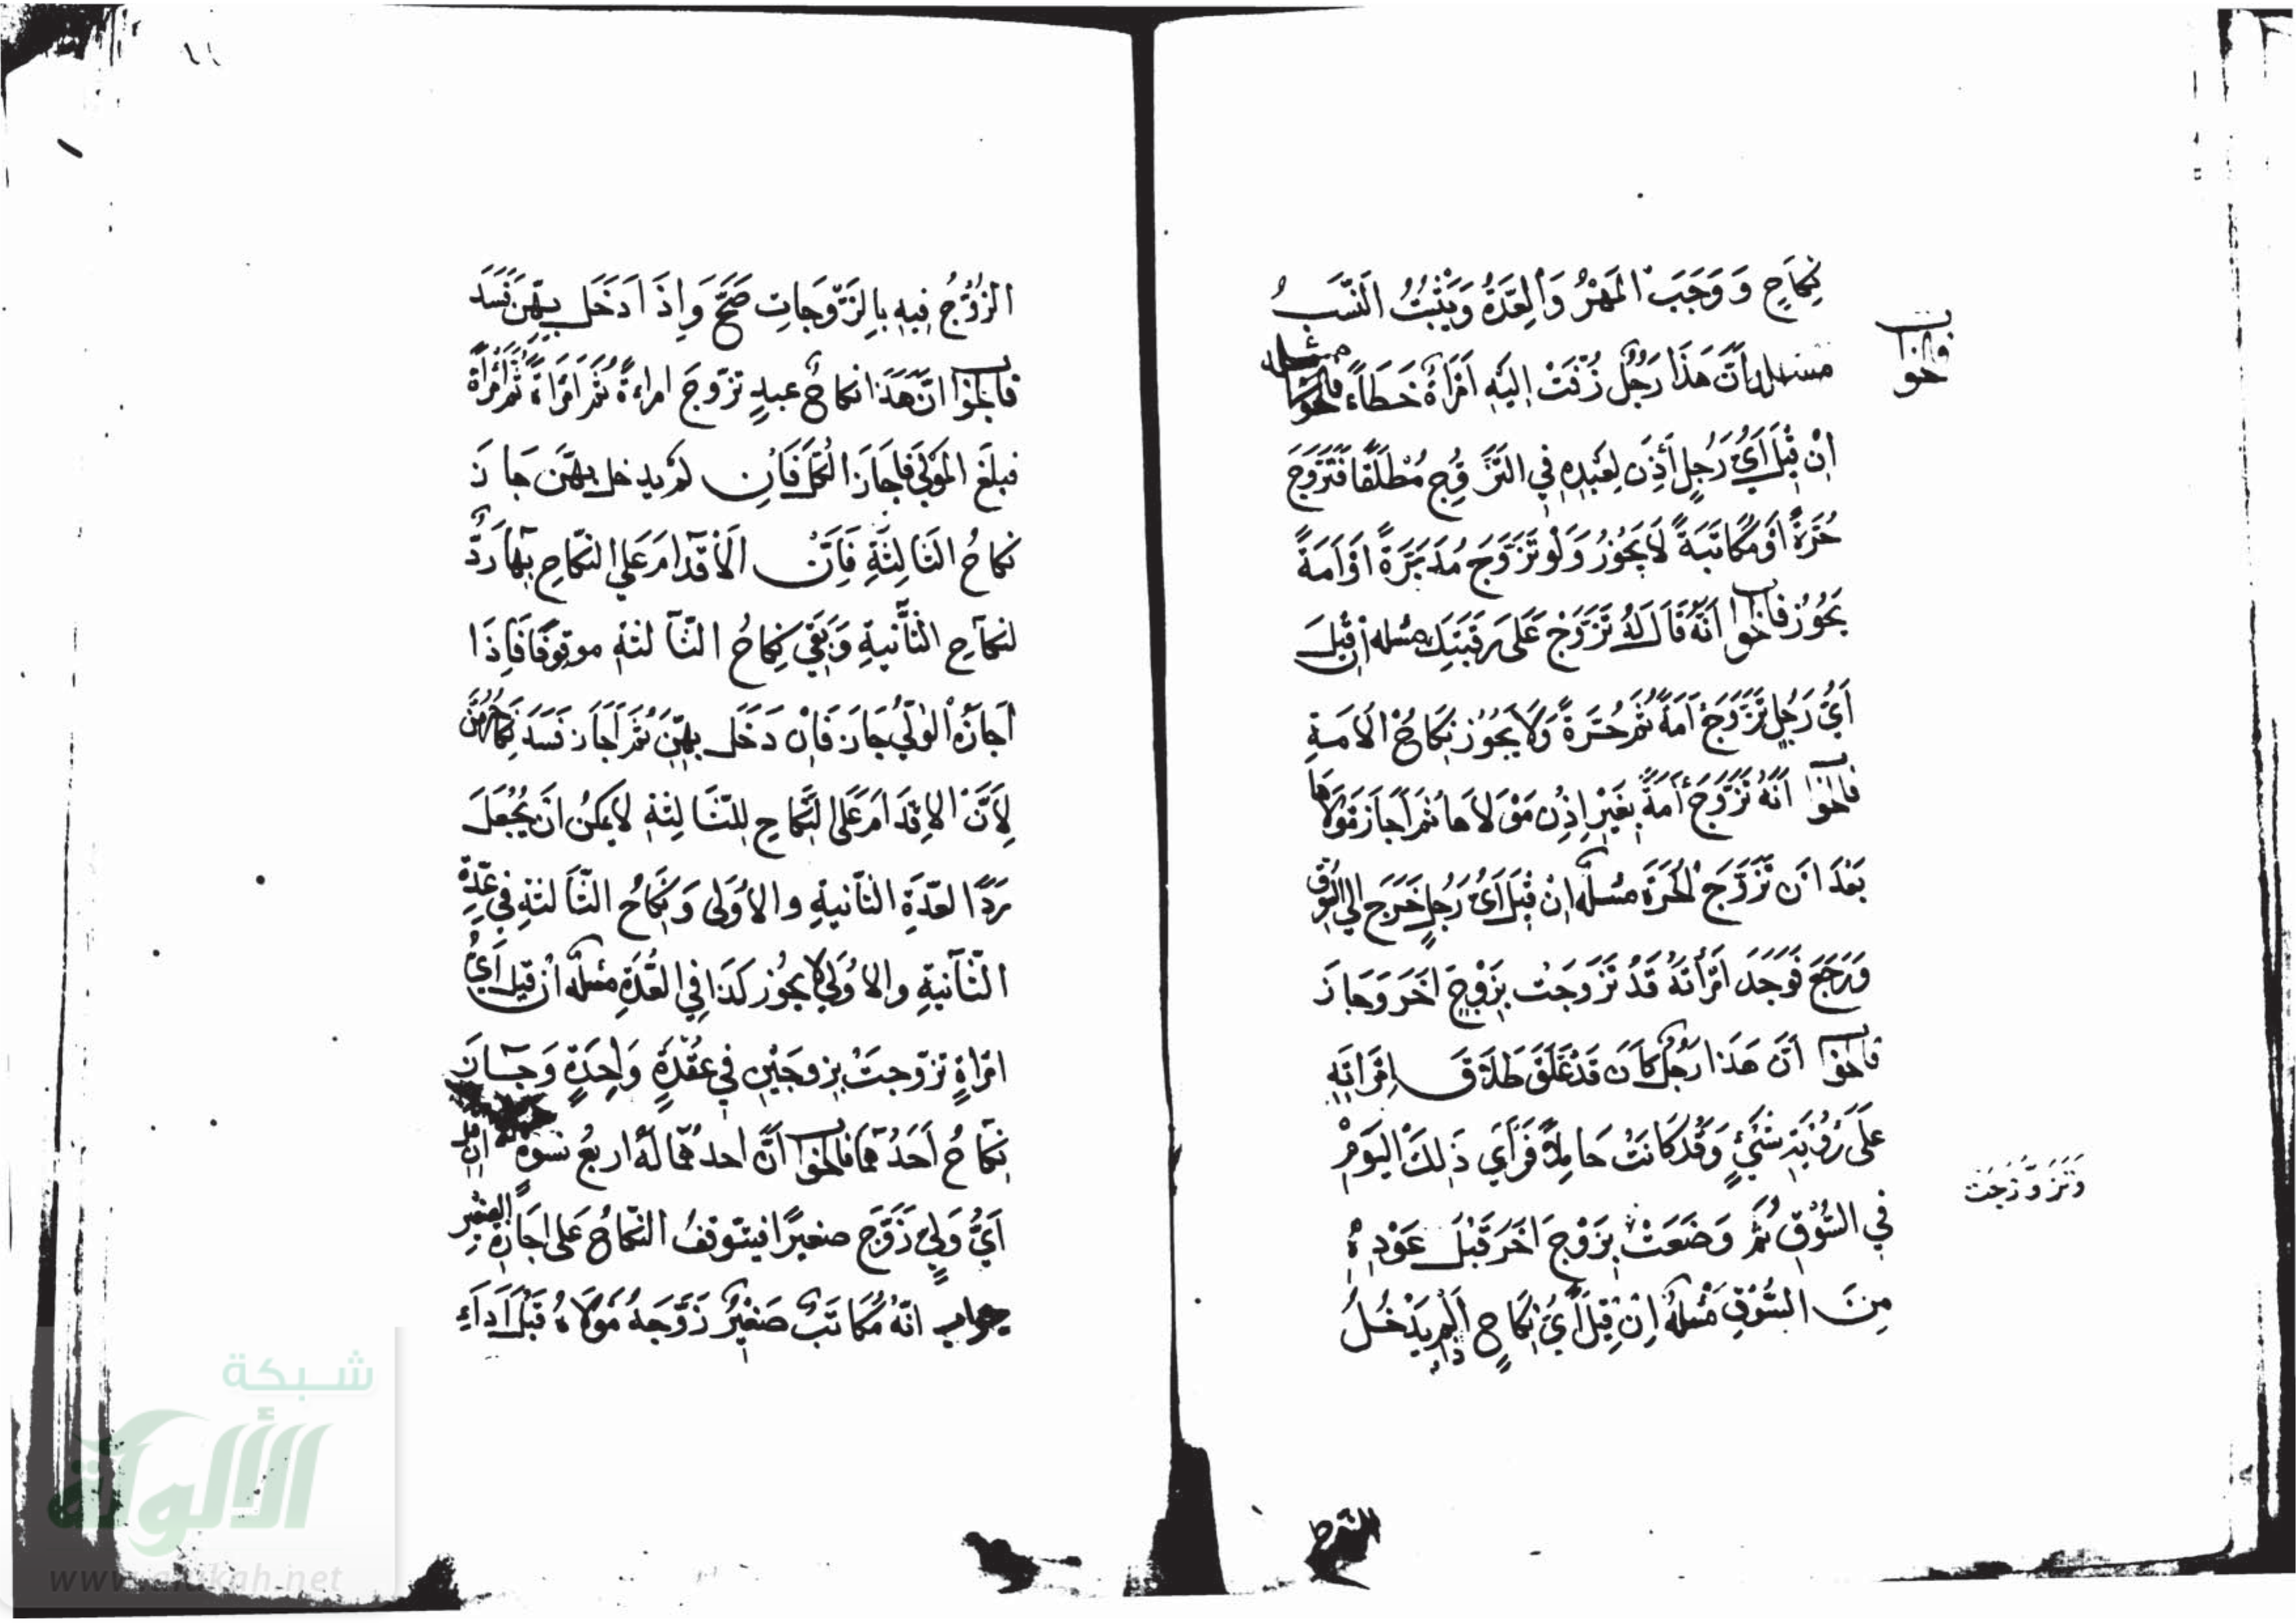 نِكَاحٍ وَوَجَبَ الْمَهْرُ وَالْعِدَّةُ وَيَثْبُتُ النَّسَبُ
فالجواب
مسئله انّ هَذَا رَجُلٌ زُفَّتْ اِلَيْهِ اَمْرَاَةٌ خَطَاءً
مسئله
اِنْ قِيْلَ اَيُّ رَجُلٍ أَذِنَ لِعَبْدِهِ فِي التَّزَوُّجِ مُطْلَقًا فَتَزَوَّجَ
حُرَّةً اَوْ مُكَاتَبَةً لَا يَجُوْزُ وَلَوْ تَزَوَّجَ مُدَبَّرَةً اَوْ اَمَةً
يَجُوْزُ فالجواب اَنَّهُ قَالَ لَهُ تَزَوَّجْ عَلَى رَقَبَتِكَ مسئله اِنْ قِيْلَ
أَيُّ رَجُلٍ تَزَوَّجَ اَمَةً ثُمَّ حُرَّةً وَلَا يَجُوْزُ نِكَاحُ الْاَمَةِ
فالجواب اَنَّهُ تَزَوَّجَ أَمَةً بِغَيْرِ اِذْنِ مَوْلَاهَا ثُمَّ اَجَازَ مَوْلَاهَا
بَعْدَ اَنْ تَزَوَّجَ الْحُرَّةَ مسئله اِنْ قِيْلَ اَيُّ رَجُلٍ خَرَجَ اِلَى السُّوْقِ
وَرَجَعَ فَوَجَدَ اَمْرَأَتَهُ قَدْ تَزَوَجَتْ بِزَوْجٍ اَخَرَ وَجَازَ
فالجواب اَنَّ هَذَا رَجُلٌ كَانَ قَدْ عَلَّقَ طَلَاقَ اِمْرَاَتِهِ
عَلَى رُؤْيَةِ شَئٍ وَقَدْ كَانَتْ حَامِلًا فَرَأَي ذَلِكَ الْيَوْمِ
فِي السُّوْقِ ثُمَّ وَضَعَتْ بِزَوْجٍ اَخَرَ قَبْلَ عَوْدِهِ
وَتَزَوَّجَتْ
مِنَ السُّوْقِ مسئله اِنْ قِيْلَ أَيُّ نِكَاحٍ لَمْ يَدْخُلُ
الزَّوْجُ فِيْهِ بِالزَّوْجَاتِ صَحَّ وَاِذَا دَخَلَ بِهِنَّ فَسَدَ
فالجواب انَّ هَذَا نكاحُ عبدٍ تزَوَّجَ امراءةً ثُمَّ امْرَاَةً ثُمَّ امْرَاَةً
فبلَغَ الْمَوْلَي فَاَجَازَ الْكُلَّ فَاِنْ لَمْ يدخل بِهِنَّ جَازَ
نكاحُ الثَالِثَةِ فَاِنَّ الْاِقْدَامَ عَلَي النِّكَاحِ بِهَا رَدٌّ
لنكاحِ الثَّانيةِ وَبَقَي نِكَاحُ الثَّالثةِ موقُوفًا فَاِذَا
اَجازَهُ الْوَلِيُّ جَازَ فَاِنْ دَخَلَ بِهِنَّ ثُمَّ اَجَازَ فَسَدَ نِكَاحُهُنَّ
لِاَنَّ الْاِقْدَامَ عَلَى النِّكَاحِ لِلثَّالِثَةِ لَا يُمْكِنُ انْ يُجْعَلَ
رَدًّا لعدَّةَ الثَّانيةِ والاُوْلَى وَنِكَاحُ الثَّالثَةِ فِي عِدَّةِ
الثَّانيَةِ والاُوْلَي لَا يَجُوْز كَذَا فِي الْعُدَّةِ مسئله اِنْ قِيلَ اَيُّ
امْرَاةٍ تزَوّجتْ بِزوجَيْنِ فِي عُقْدَةٍ وَاحِدَةٍ وَجَازَ
نِكَاحُ اَحَدِهُمَا فالجواب اَنَّ احدهُمَا لَهُ اربعُ نسْوَةٍ ان قيل
اَيُّ وَلِيٍّ زَوَّجَ صغيرًا فيتوقفُ النِّكَاحُ عَلى اجَازةِ الصغير
جواب انَّهُ مُكَاتَبٌ صَغْيِرٌ زَوَّجَهُ مَوْلَاهُ قَبْلَ اَدَاءِ
شبكة
الألوكة
www.alukah.net